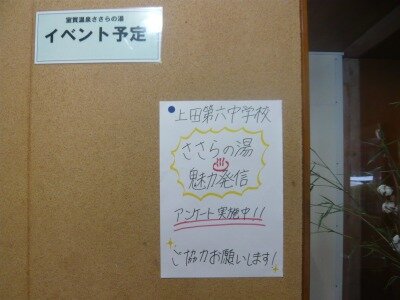 室賀温泉ささらの湯
イベント予定
上田第六中学校
ささらの湯
魅力発信
アンケート実施中!!
ご協力お願いします!